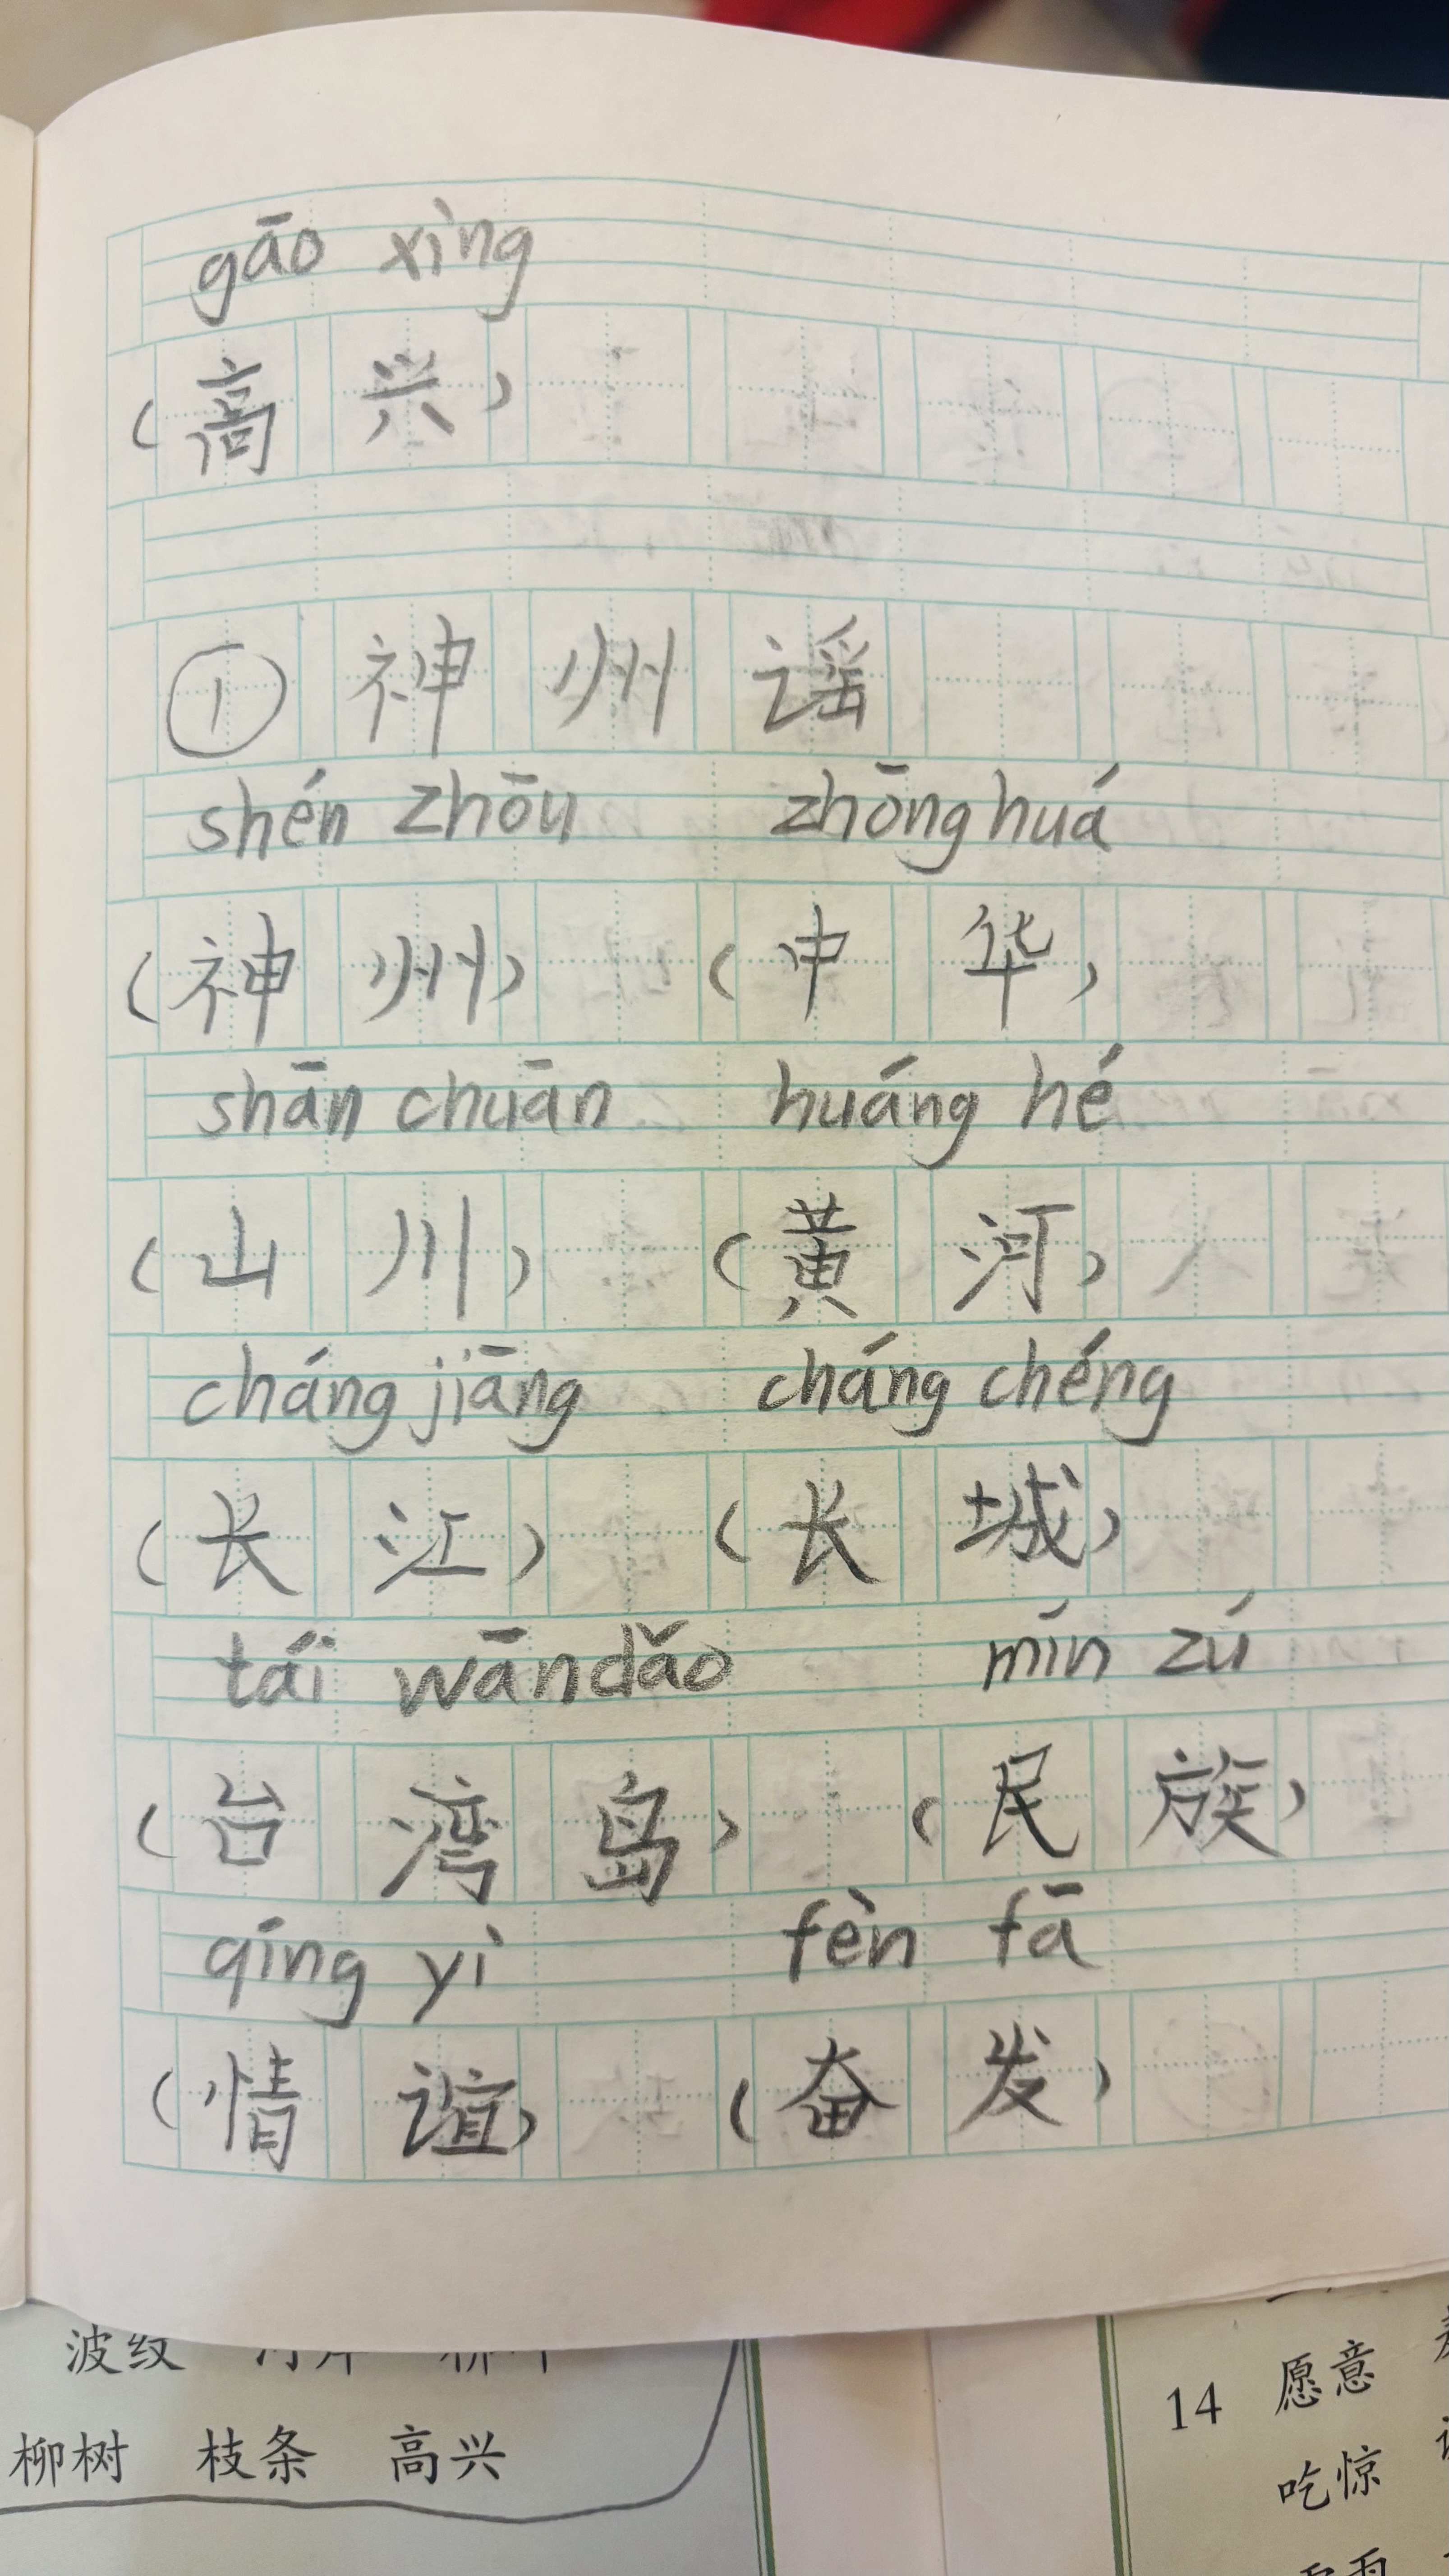 gāo xìng
（高兴）
① 神州谣
shén zhōu zhōng huá
（神州）（中华）
shān chuān huáng hé
（山川）（黄河）
cháng jiāng cháng chéng
（长江）（长城）
tái wān dǎo mín zú
（台湾岛）（民族）
qíng yì fèn fā
（情谊）（奋发）
波纹
柳树 枝条 高兴
14 愿意
吃惊